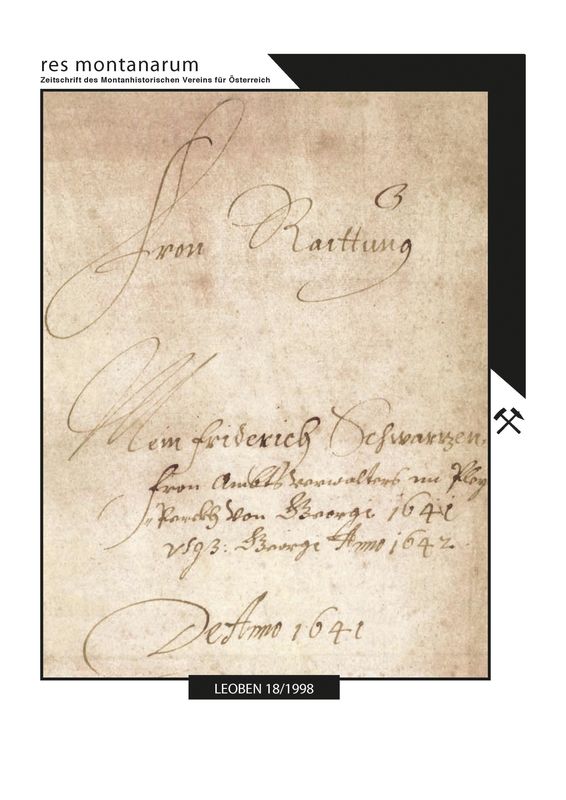 res montanarum
Zeitschrift des Montanhistorischen Vereins für Österreich
Fron Raittung
Mein friderich Schwarzen,
fron Ambtsverwalters im Pley
Perckh von Georgi 1641
Georgi Anno 1642
De Anno 1641
LEOBEN 18/1998